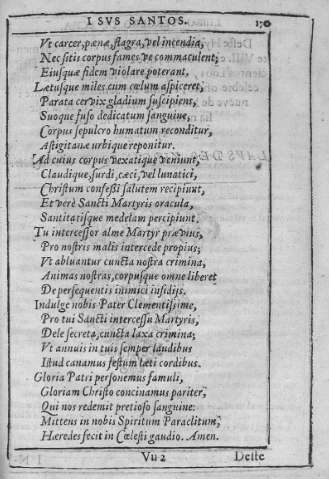 I SVS SANTOS. 170
Vt carcer, pænæ, flagra, vel incendia,
Nec sitis corpus fames ve commaculent;
Eiusquæ fidem violare poterant,
Lætusque miles cum cœlum aspiceret,
Parata cervix gladium suscipiens,
Suoque fuso dedicatum sanguine,
Corpus sepulcro humatum reconditur,
Astigitanæ urbique reponitur.
Ad cuius corpus vexatique veniunt,
Claudique, surdi, cæci, vel lunatici,
Christum confessi salutem recipiunt,
Et verè Sancti Martyris oracula,
Santitatisque medelam percipiunt.
Tu intercessor alme Martyr prævius,
Pro nostris malis intercede propius;
Vt abluantur cuncta nostra crimina,
Animas nostras, corpusque omne liberet
De persequentis inimici insidijs.
Indulge nobis Pater Clementissime,
Pro tui Sancti intercessu Martyris,
Dele secreta, cuncta laxa crimina;
Vt annuis in tuis semper laudibus
Istud canamus festum læti cordibus.
Gloria Patri personemus famuli,
Gloriam Christo concinamus pariter,
Qui nos redemit pretioso sanguine:
Mittens in nobis Spiritum Paraclitum,
Hæredes fecit in Cœlesti gaudio. Amen.
Vu 2 Deste